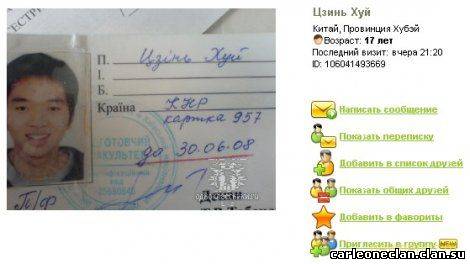 ЕСТР
П. Цзінь Хуй
І.
Б.
Країна КНР
картка 957
ГОТОВЧИЙ
АКУЛЬТЕ
до 30.06.08
П/Ф
Декан
odnoklassniki.ru
Цзинь Хуй
Китай, Провинция Хубэй
Возраст: 17 лет
Последний визит: вчера 21:20
ID: 106041493669
Написать сообщение
Показать переписку
Добавить в список друзей
Показать общих друзей
Добавить в фавориты
Пригласить в группу NEW
carleoneclan.clan.su